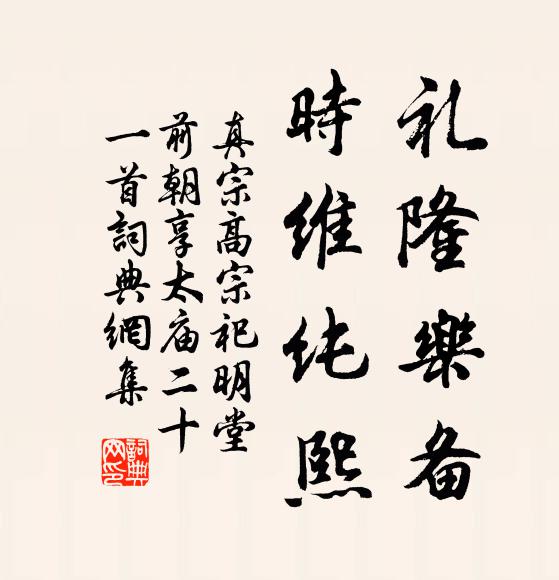 礼隆樂备
時维纯熙
真宗高宗祀明堂
前朝享太庙二十
一首詞典網集
詞典
网印